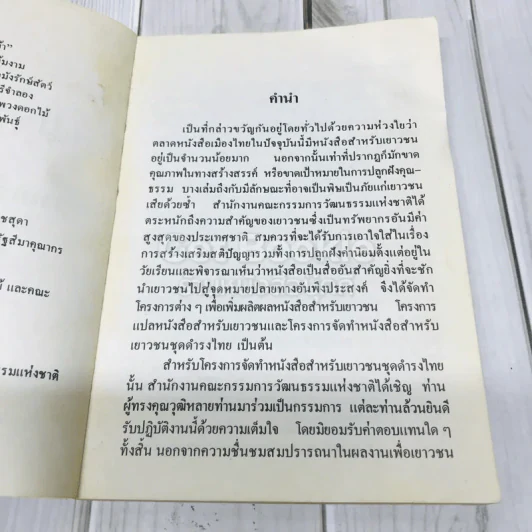 ล้มงาม
มังรักษ์สัตว์
รีจำลอง
พวงดอกไม้
พันธุ์
ชสุดา
รัฐสีมาคุณากร
และคณะ
รรมแห่งชาติ
คำนำ
เป็นที่กล่าวขวัญกันอยู่โดยทั่วไปด้วยความห่วงใยว่า
ตลาดหนังสือเมืองไทยในปัจจุบันนี้มีหนังสือสำหรับเยาวชน
อยู่เป็นจำนวนน้อยมาก นอกจากนั้นเท่าที่ปรากฏก็มักขาด
คุณภาพในทางสร้างสรรค์ หรือขาดเป้าหมายในการปลูกฝังคุณ-
ธรรม บางเล่มถึงกับมีลักษณะที่อาจเป็นพิษเป็นภัยแก่เยาวชน
เสียด้วยซ้ำ สำนักงานคณะกรรมการวัฒนธรรมแห่งชาติได้
ตระหนักถึงความสำคัญของเยาวชนซึ่งเป็นทรัพยากรอันมีค่า
สูงสุดของประเทศชาติ สมควรที่จะได้รับการเอาใจใส่ในเรื่อง
การสร้างเสริมสติปัญญารวมทั้งการปลูกฝังค่านิยมตั้งแต่อยู่ใน
วัยเรียนและพิจารณาเห็นว่าหนังสือเป็นสื่ออันสำคัญยิ่งที่จะชัก
นำเยาวชนไปสู่จุดหมายปลายทางอันพึงประสงค์ จึงได้จัดทำ
โครงการต่าง ๆ เพื่อเพิ่มผลิตผลหนังสือสำหรับเยาวชน โครงการ
แปลหนังสือสำหรับเยาวชนและโครงการจัดทำหนังสือสำหรับ
เยาวชนชุดดำรงไทย เป็นต้น
สำหรับโครงการจัดทำหนังสือสำหรับเยาวชนชุดดำรงไทย
นั้น สำนักงานคณะกรรมการวัฒนธรรมแห่งชาติได้เชิญ ท่าน
ผู้ทรงคุณวุฒิหลายท่านมาร่วมเป็นกรรมการ แต่ละท่านล้วนยินดี
รับปฏิบัติงานนี้ด้วยความเต็มใจ โดยมิยอมรับค่าตอบแทนใด ๆ
ทั้งสิ้น นอกจากความชื่นชมสมปรารถนาในผลงานเพื่อเยาวชน